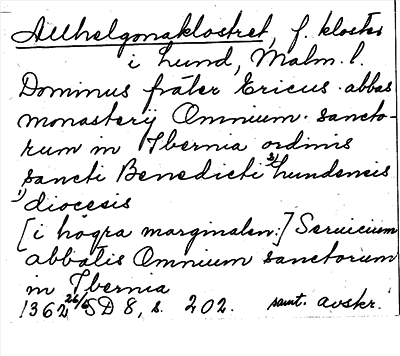 Allhelgonaklostret, f. kloster
i Lund, Malm. l.
Dominus frater Ericus abbas
monasterij Omnium sancto-
rum in Ibernia ordinis
sancti Benedicti Lundensis
1) diocesis
[i högra marginalen:] Seruicium
abbatis Omnium sanctorum
in Ibernia
1362 26/5 D 8, s. 202. samt. avskr.